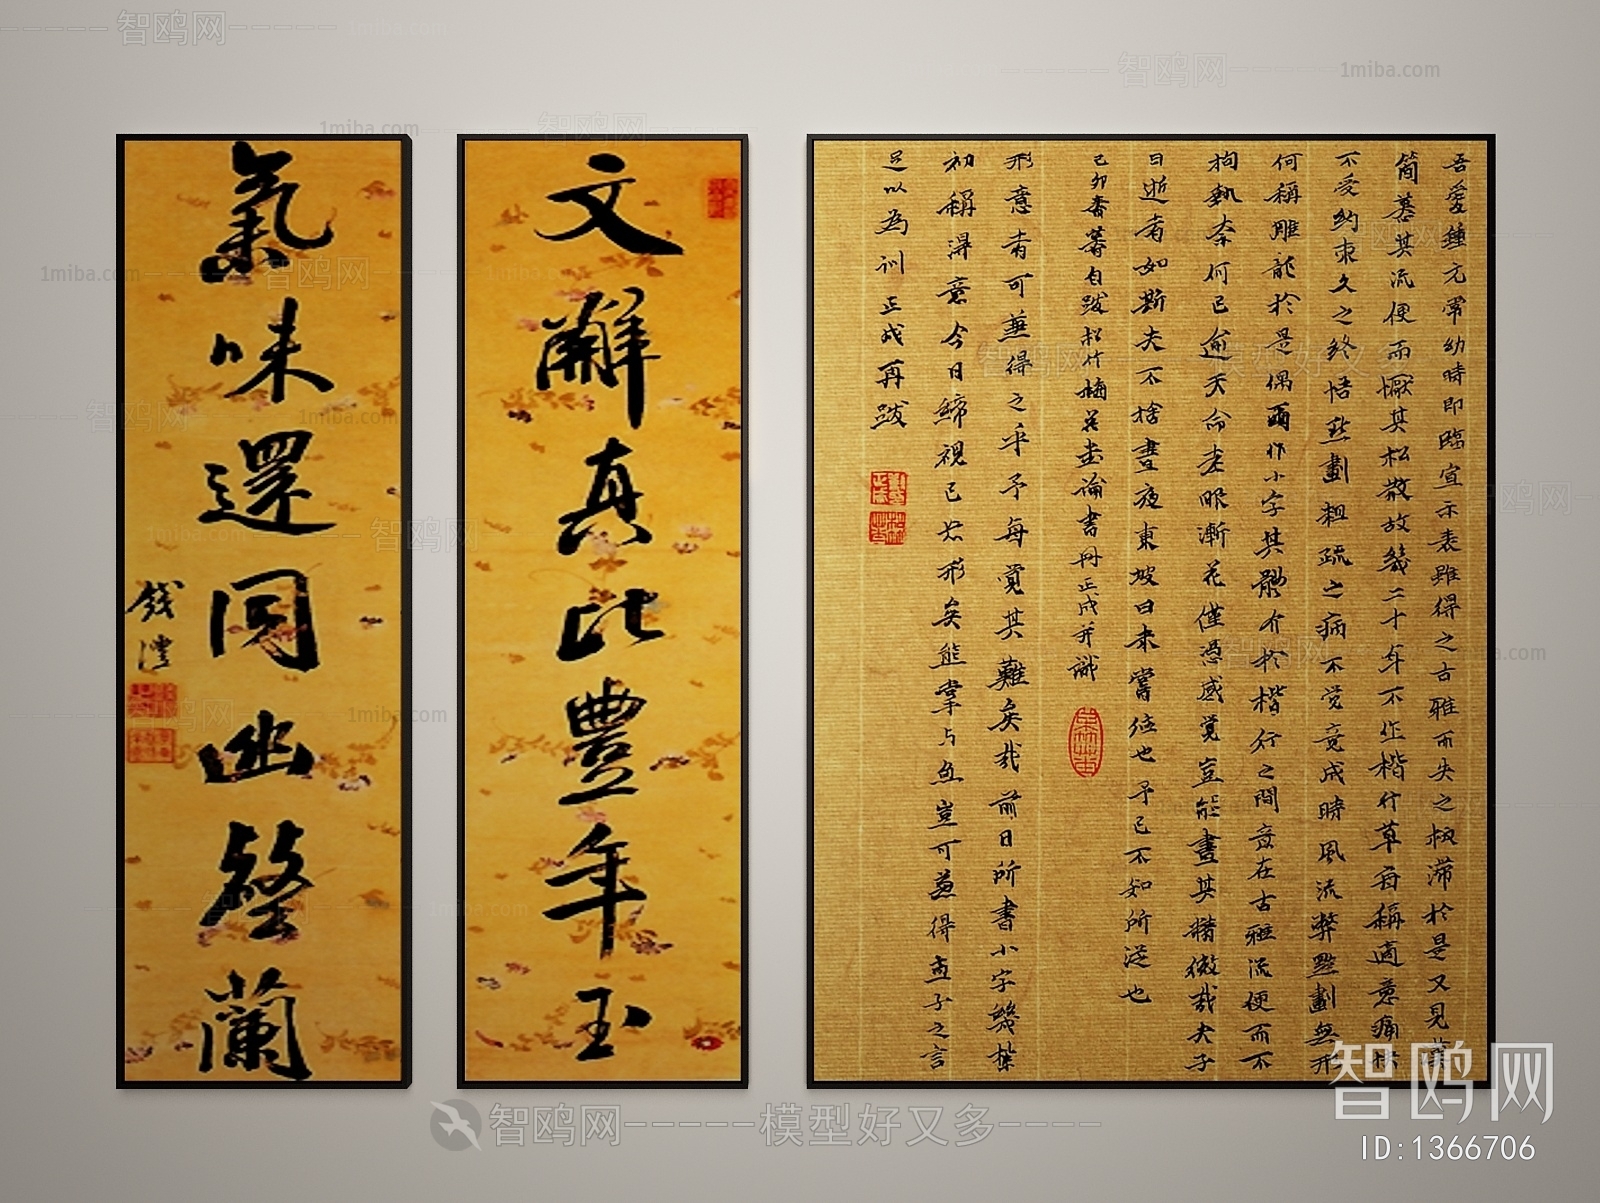 吾愛鍾元常幼時即臨宣示表雖得之古雅而失之板滯於是又見
簡慕其流便而厭其松散故幾二十年不作楷行草每稱適意痛快
不受約束久之終悟點劃粗疏之病不覺竟成時風流弊點劃無形
何稱雕龍於是偶爾作小字其體介於楷行之間意在古雅流便而不
拘執奈何已逾天命老眼漸花僅憑感覺豈能盡其精微哉夫子
曰逝者如斯夫不捨晝夜東坡曰未嘗往也予已不知所從也
己卯春暮自跋松竹梅花畫論書冊正成并識
形意者可兼得之乎予每覺其難矣哉前日所書小字幾葉
初稱得意今日締視已忘形矣熊掌与魚豈可兼得孟子之言
足以為訓正成再跋
文辭真比豐年玉
氣味還同幽壑蘭
錢灃
智鸥网-----模型好又多----
智鸥网
ID:1366706
1miba.com